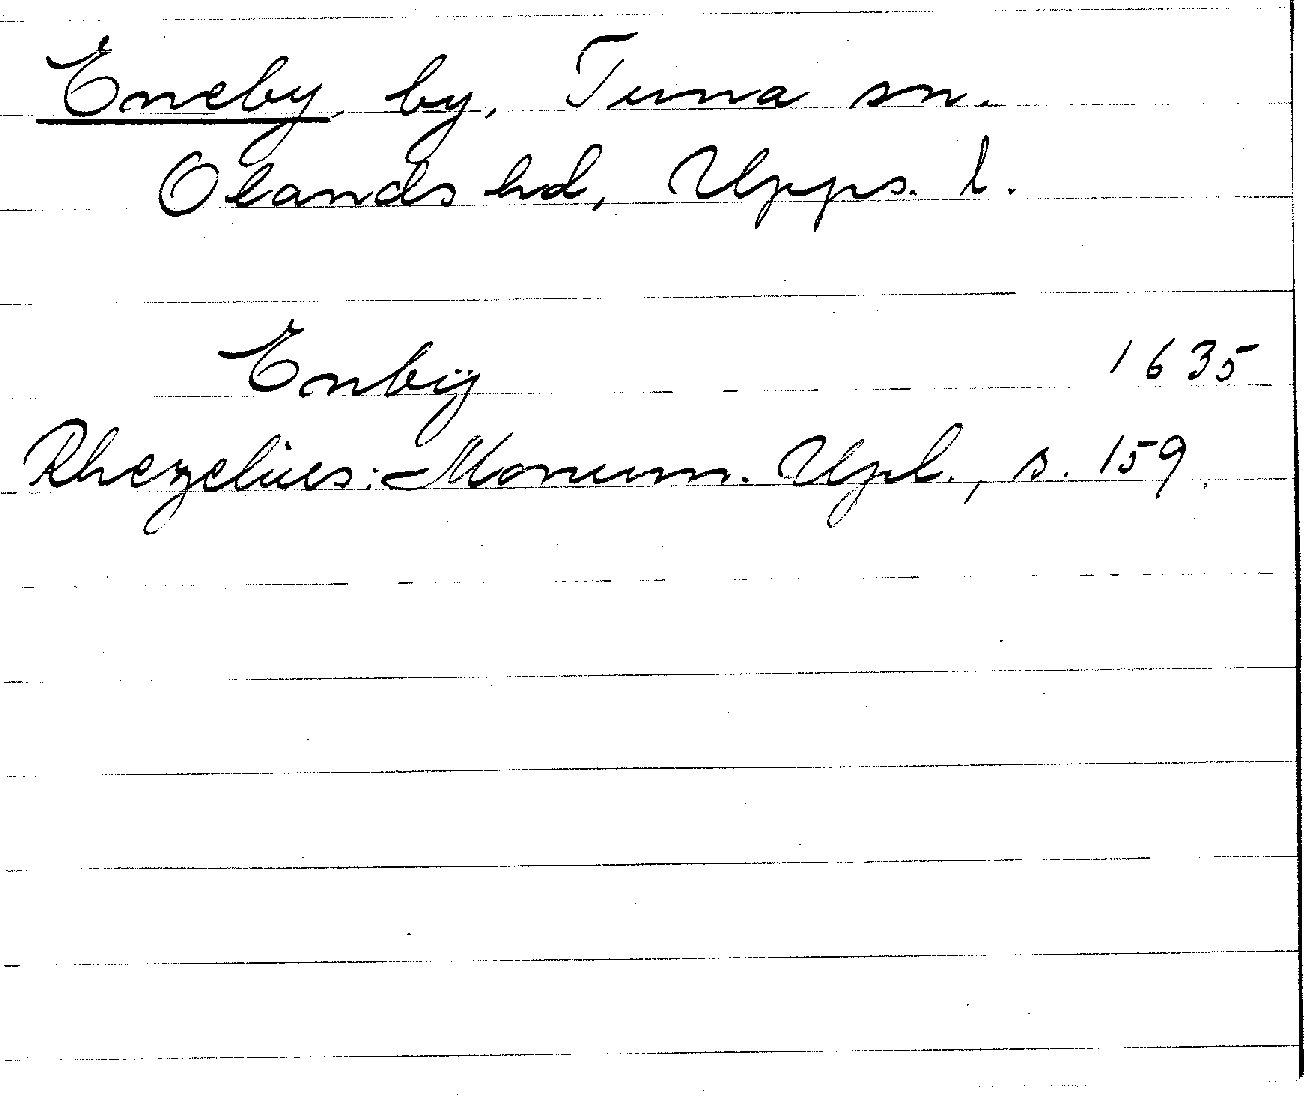 Eneby by, Tuna sn.
Olands hd, Upps. l.
Enbÿ 1635
Rhezelius: Monum. Upl., s. 159.